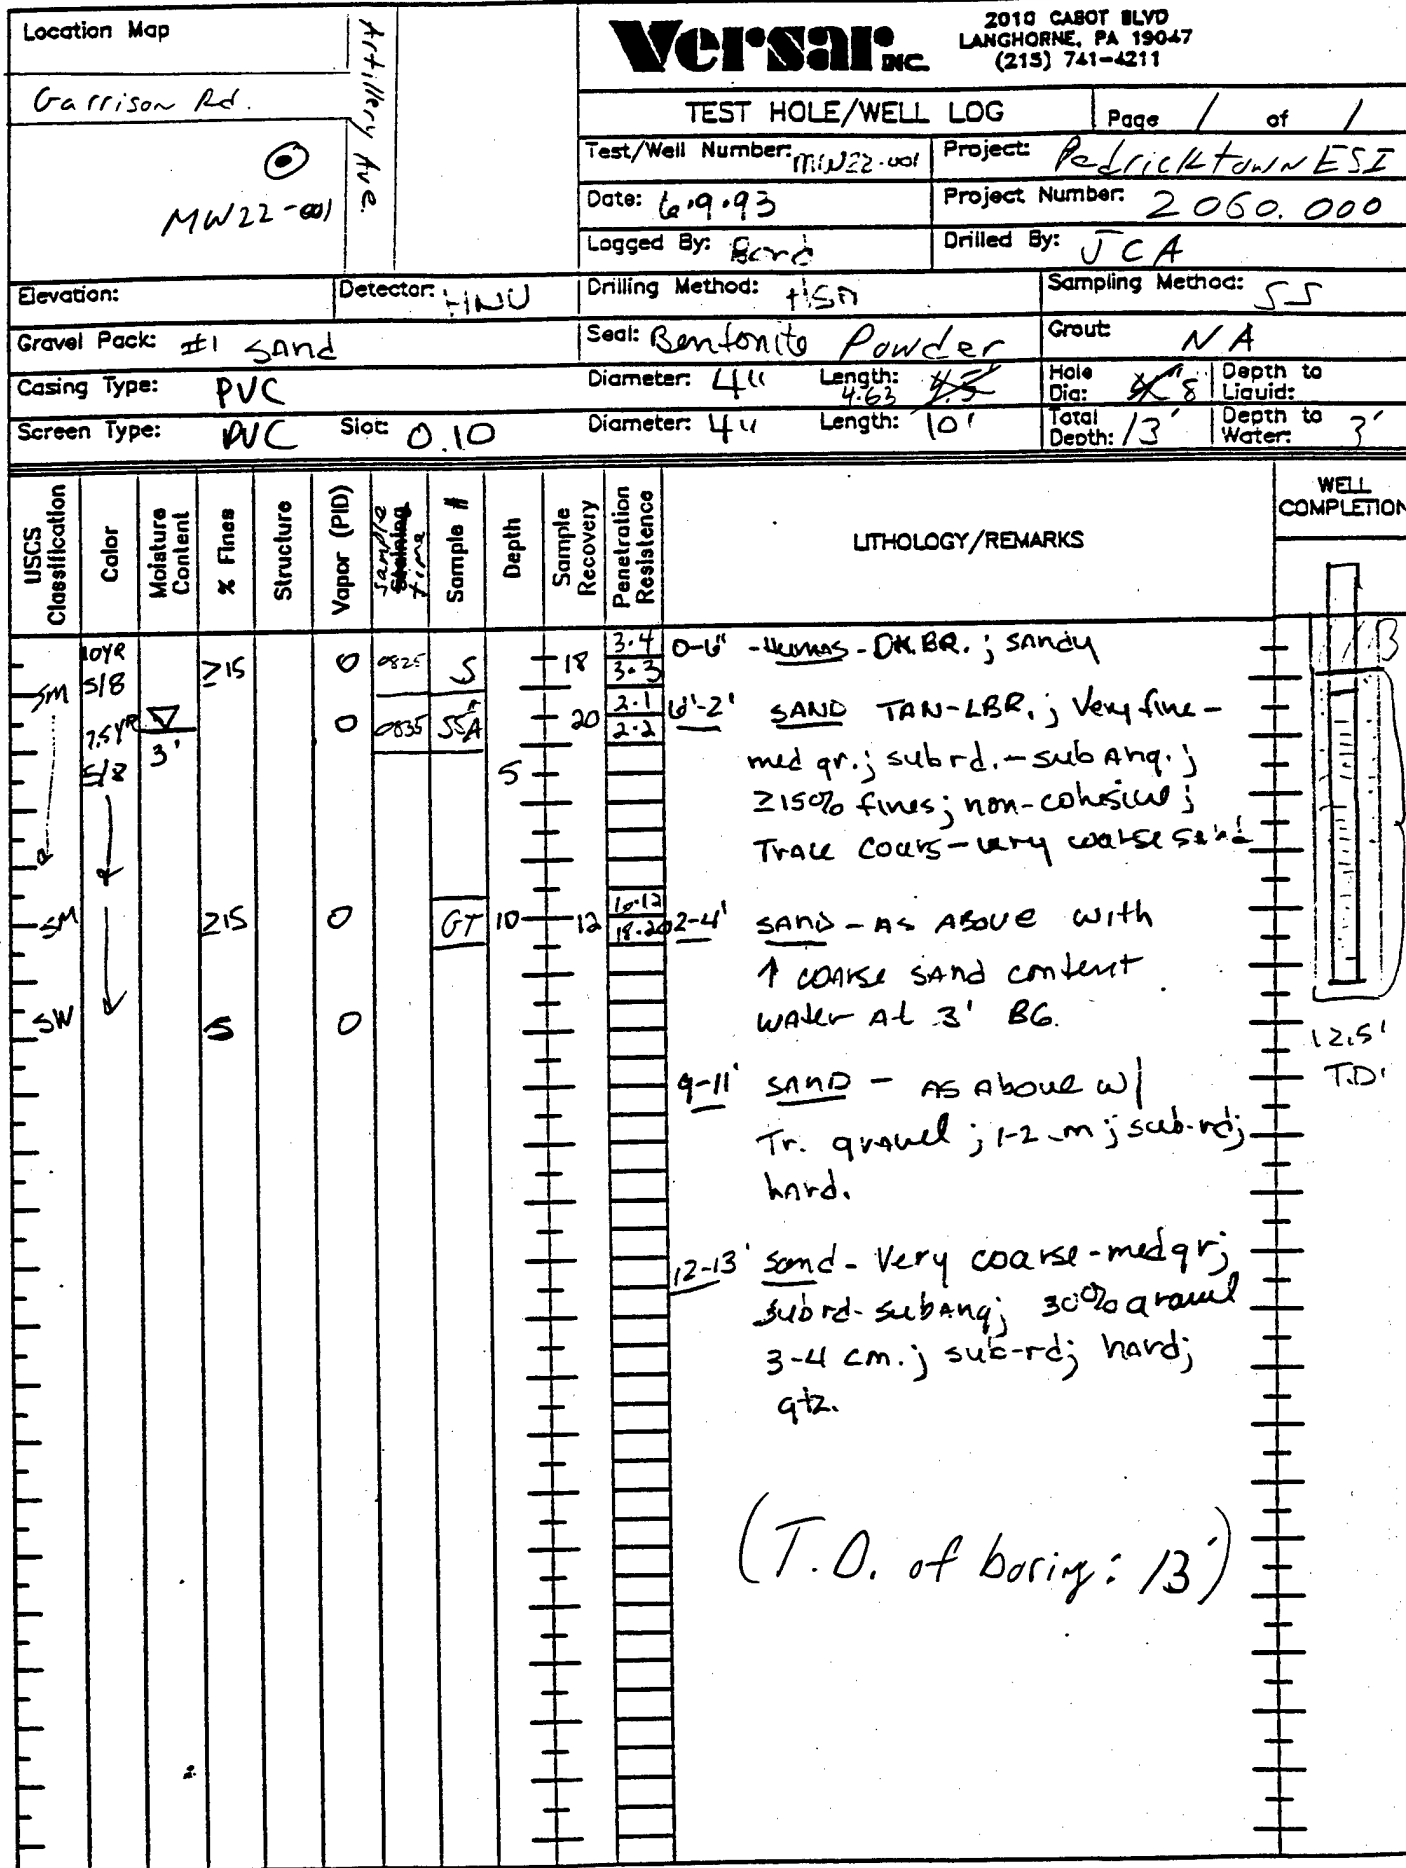 Location Map
Artillery Ave.
Garrison Rd.
MW22-001
Versar INC.
2010 CABOT BLVD
LANGHORNE, PA 19047
(215) 741-4211
TEST HOLE/WELL LOG Page 1 of 1
Test/Well Number: MW22-001 Project: Pedricktown ESI
Date: 6.9.93 Project Number: 2060.000
Logged By: Drilled By: JCA
Elevation: Detector: HNU Drilling Method: HSA Sampling Method: SS
Gravel Pack: #1 SAnd Seal: Bentonite Powder Grout: NA
Casing Type: PVC Diameter: 4" Length: 4.5' 4.63 Hole Dia: 8" Depth to Liquid:
Screen Type: PVC Slot: 0.10 Diameter: 4" Length: 10' Total Depth: 13' Depth to Water: 3'
USCS Classification
Color
Moisture Content
% Fines
Structure
Vapor (PID)
Staining
sample time
Sample #
Depth
Sample Recovery
Penetration Resistence
LITHOLOGY/REMARKS
WELL COMPLETION
SM 10YR 5/8 ≥15 0 0825 S 18 3.4 3.3
0-6" - Humas - DK.BR. ; SAndy
B
7.5YR 5/8 3' 0 0835 20 2.1 2.2
6"-2' SAND TAN-LBR. ; Very fine -
med gr. ; subrd. - subAng. ;
5
≥15% fines ; non-cohesive ;
TRACE Coars - very coarse sand
SM ≥15 0 GT 10 12 10.12 18.20
2-4' SAND - AS ABOVE with
↑ coarse sand content
water At 3' BG.
SW 5 0
12.5'
T.D.
9-11' SAND - AS Above w/
Tr. gravel ; 1-2 cm ; sub-rd ;
hard.
12-13' Sand - Very coarse - med gr ;
subrd - subAng ; 30% gravel
3-4 cm. ; sub-rd ; hard ;
qtz.
(T.D. of boring: 13')